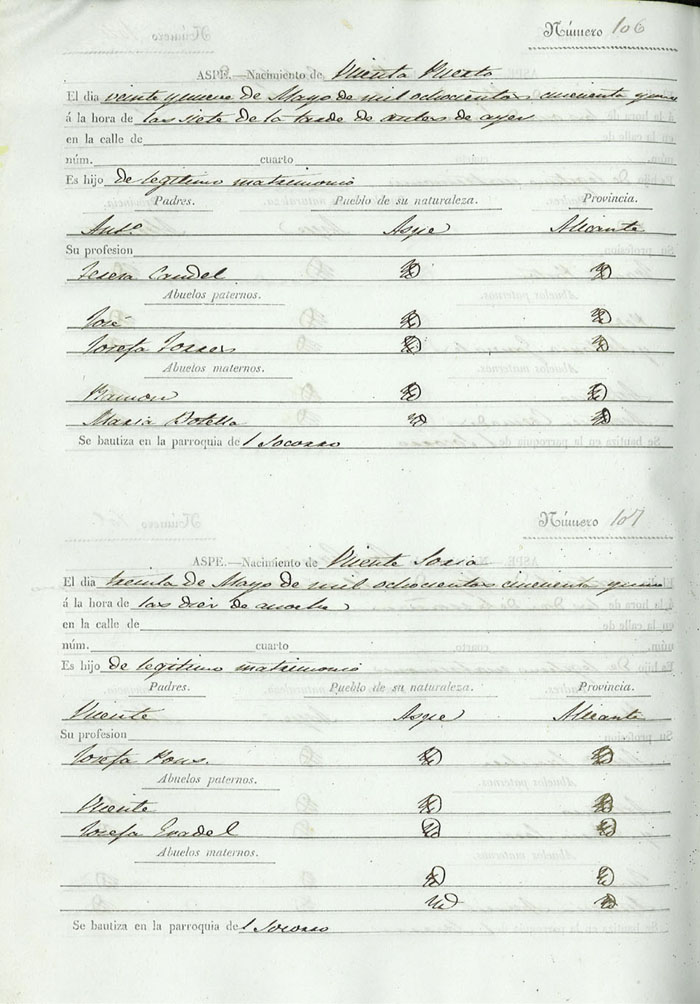 Número 106
ASPE.—Nacimiento de Vicenta Puerto
El dia veinte y nueve de Mayo de mil ochocientos cincuenta y uno
á la hora de las siete de la tarde de antes de ayer
en la calle de
núm. cuarto
Es hijo de legitimo matrimonio
Padres. Pueblo de su naturaleza. Provincia.
Antº Aspe Alicante
Su profesion
Teresa Candel
Abuelos paternos.
José
Josefa Torres
Abuelos maternos.
Ramon
Maria Botella
Se bautiza en la parroquia de l Socorro
Número 107
ASPE.—Nacimiento de Vicente Soria
El dia treinta de Mayo de mil ochocientos cincuenta y uno
á la hora de las diez de anoche
en la calle de
núm. cuarto
Es hijo de legitimo matrimonio
Padres. Pueblo de su naturaleza. Provincia.
Vicente Aspe Alicante
Su profesion
Josefa Pons.
Abuelos paternos.
Vicente
Josefa
Abuelos maternos.
Se bautiza en la parroquia de l Socorro